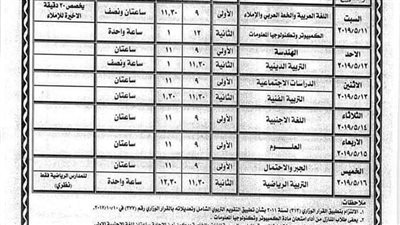 السبت ٢٠١٩/٥/١١ اللغة العربية والخط العربي والإملاء الأولى ٩ ١١,٣٠ ساعتان ونصف يخصص ٢٠ دقيقة الأخيرة للإملاء
الكمبيوتر وتكنولوجيا المعلومات الثانية ١٢ ١ ساعة واحدة
الاحد ٢٠١٩/٥/١٢ الهندسة الأولى ٩ ١١ ساعتان
التربية الدينية الثانية ١١,٣٠ ١ ساعة ونصف
الاثنين ٢٠١٩/٥/١٣ الدراسات الاجتماعية الأولى ٩ ١١ ساعتان
التربية الفنية الثانية ١١,٣٠ ١,٣٠ ساعتان
الثلاثاء ٢٠١٩/٥/١٤ اللغة الاجنبية الأولى ٩ ١١ ساعتان
الاربعاء ٢٠١٩/٥/١٥ العلوم الأولى ٩ ١١ ساعتان
الخميس ٢٠١٩/٥/١٦ الجبر والاحتمال الأولى ٩ ١١ ساعتان
التربية الرياضية الثانية ١١,٣٠ ١٢,٣٠ ساعة واحدة للمدارس الرياضية فقط (نظري)
ملاحظات
١. الالتزام بتطبيق القرار الوزاري (٣١٣) لسنة ٢٠١١ بشأن تطبيق التقييم التربوي الشامل وتعديلاته بالقرار الوزاري رقم (٣٧٧)
٢. يعفى طلاب المنازل من أداء امتحان مادة الكمبيوتر وتكنولوجيا المعلومات